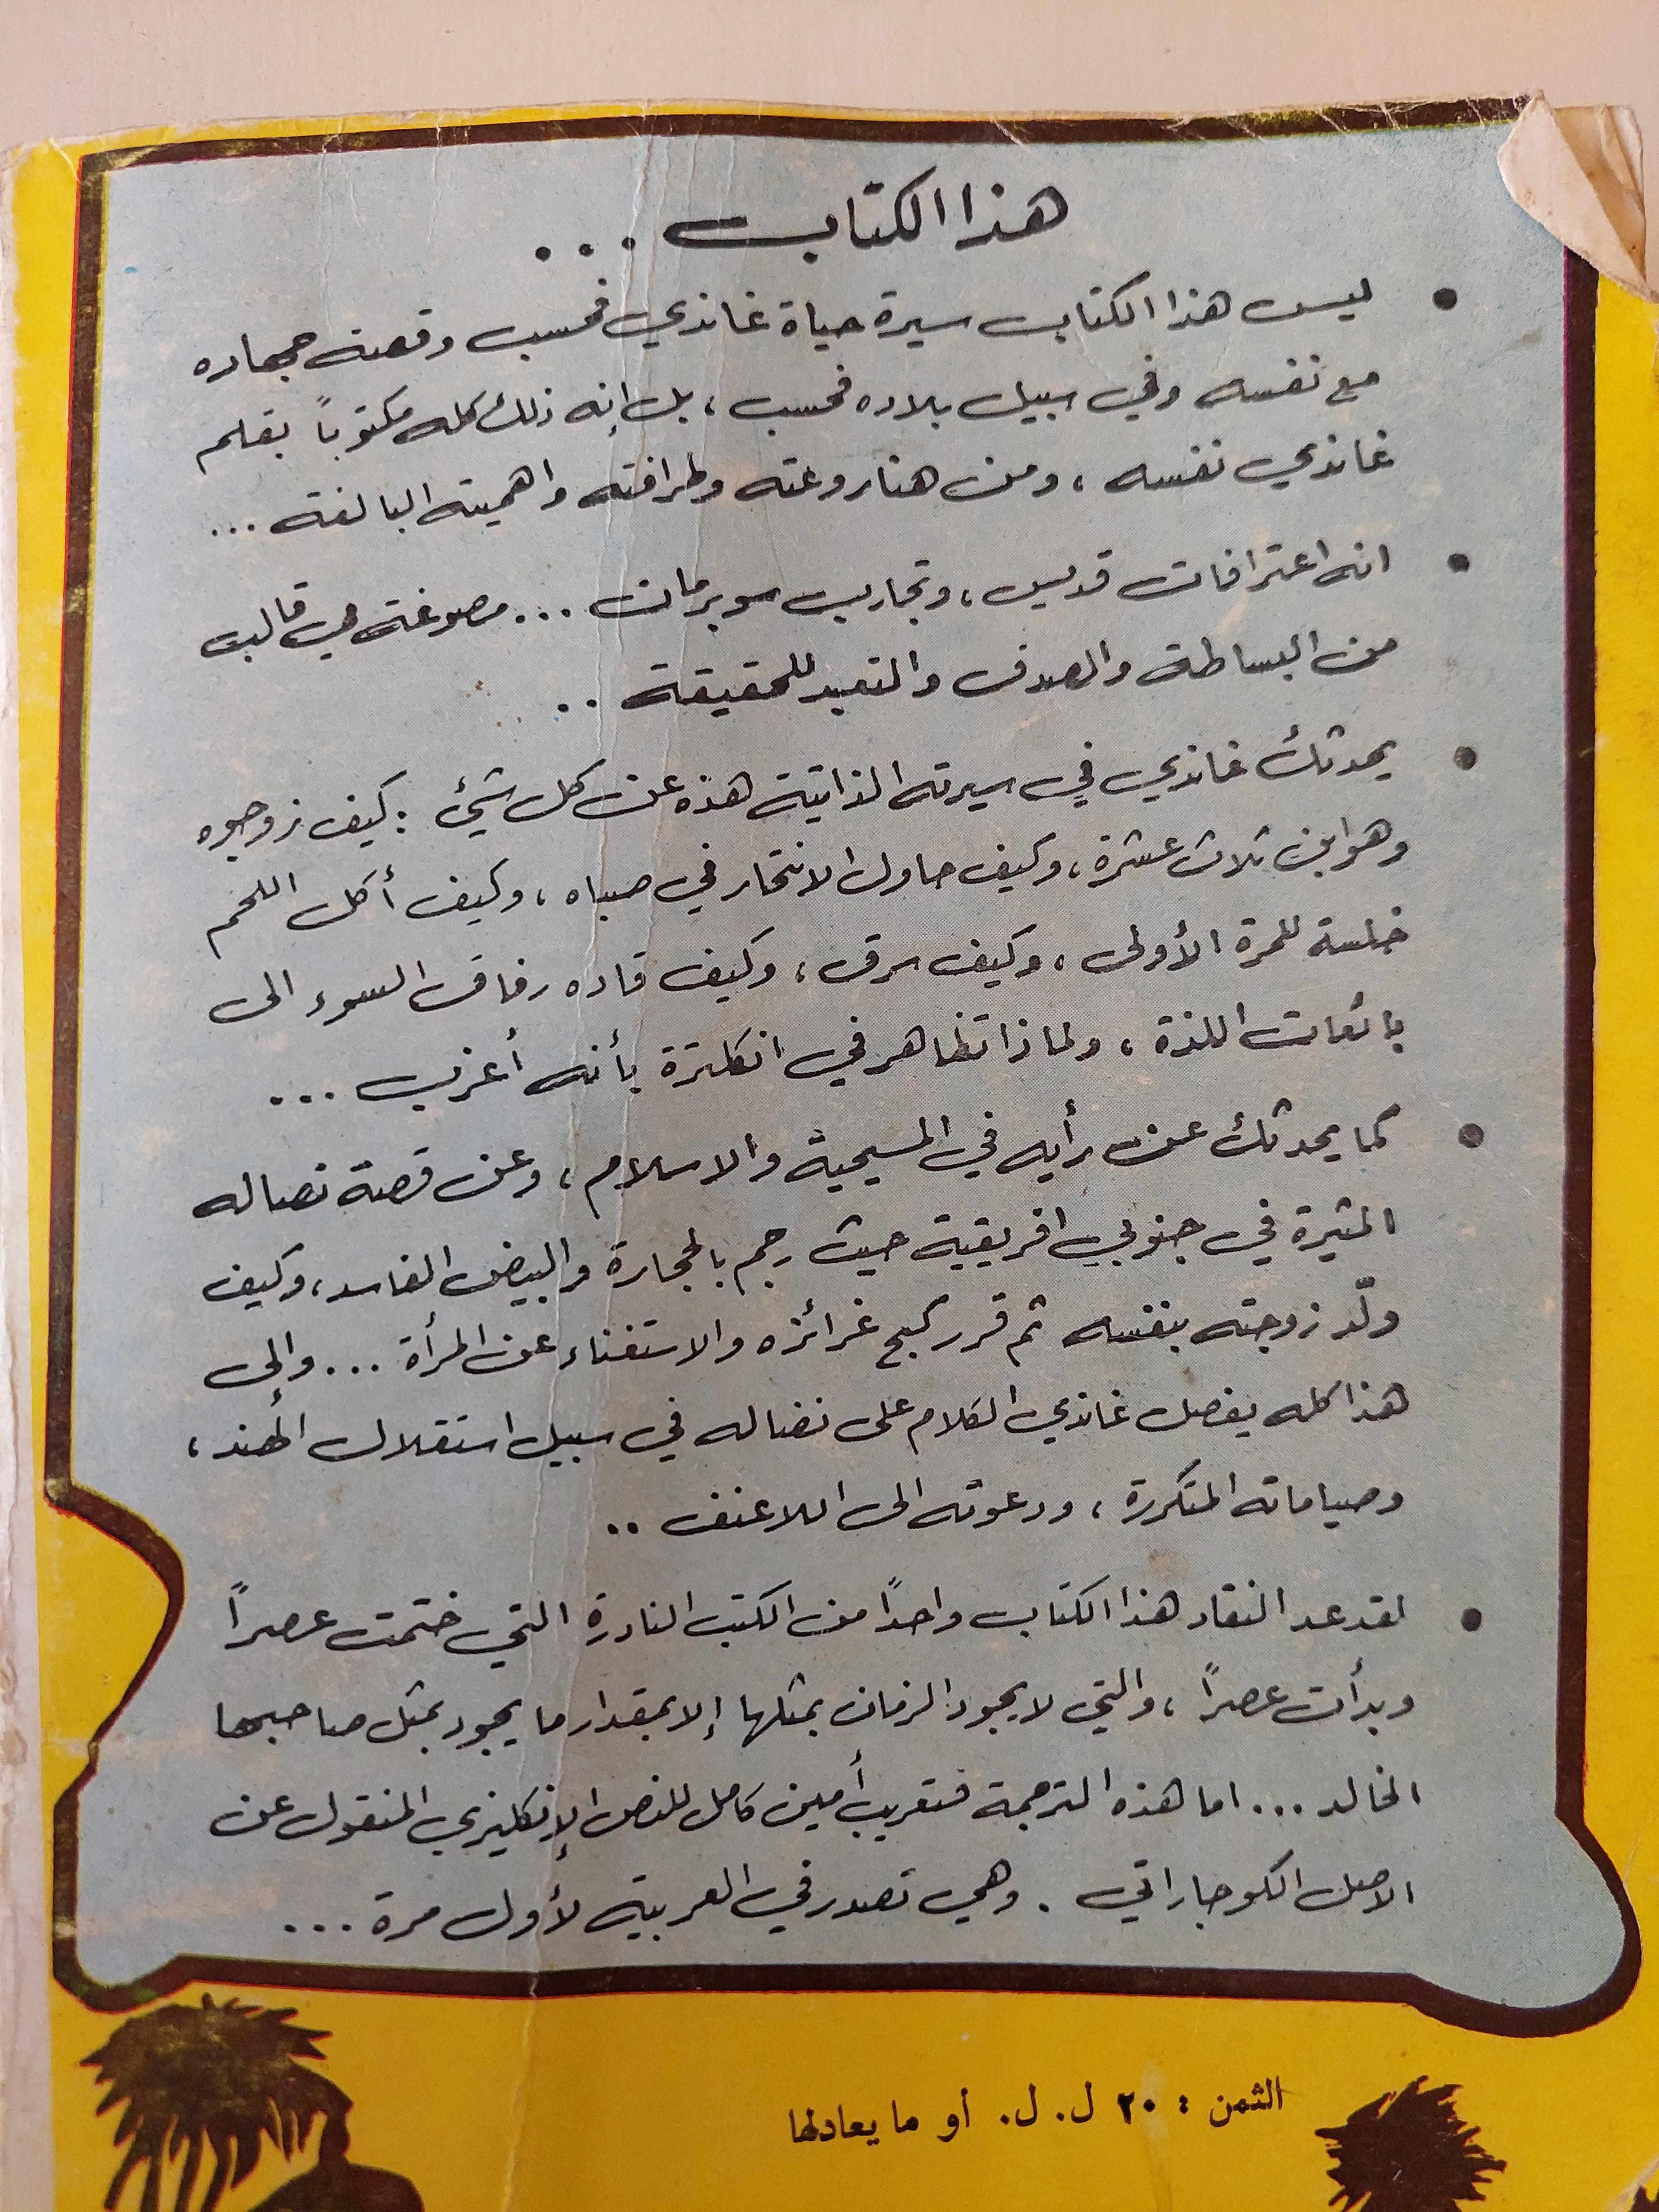 هذا الكتاب ...
• ليس هذا الكتاب سيرة حياة غاندي فحسب وقصة جهاده
مع نفسه وفي سبيل بلاده فحسب ، بل إنه ذلك كله مكتوباً بقلم
غاندي نفسه ، ومن هنا روعته وطرافته واهميته البالغة ...
• انه اعترافات قديس ، وتجارب سوبرمان ... مصوغة في قالب
من البساطة والصدق والتعبد للحقيقة ..
• يحدثك غاندي في سيرته الذاتية هذه عن كل شيئ : كيف زوجوه
وهو ابن ثلاث عشرة ، وكيف حاول الانتحار في صباه ، وكيف أكل اللحم
خلسة للمرة الأولى ، وكيف سرق ، وكيف قاده رفاق السوء الى
بائعات اللذة ، ولماذا تظاهر في انكلترة بأنه أعزب ...
• كما يحدثك عن رأيه في المسيحية والاسلام ، وعن قصة نضاله
المثيرة في جنوبي افريقية حيث رجم بالحجارة والبيض الفاسد ، وكيف
ولّد زوجته بنفسه ثم قرر كبح غرائزه والاستغناء عن المرأة ... وإلى
هذا كله يفصل غاندي الكلام على نضاله في سبيل استقلال الهند ،
وصياماته المتكررة ، ودعوته الى اللاعنف ..
• لقد عد النقاد هذا الكتاب واحداً من الكتب النادرة التي ختمت عصراً
وبدأت عصراً ، والتي لا يجود الزمان بمثلها إلا بمقدار ما يجود بمثل صاحبها
الخالد ... اما هذه الترجمة فتعريب أمين كامل للنص الإنكليزي المنقول عن
الاصل الكوجاراتي . وهي تصدر في العربية لأول مرة ...
الثمن : ٢٠ ل. ل. أو ما يعادلها